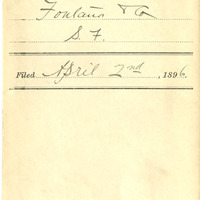 Fontana & Co
S. F.
Filed April 2nd, 1896.